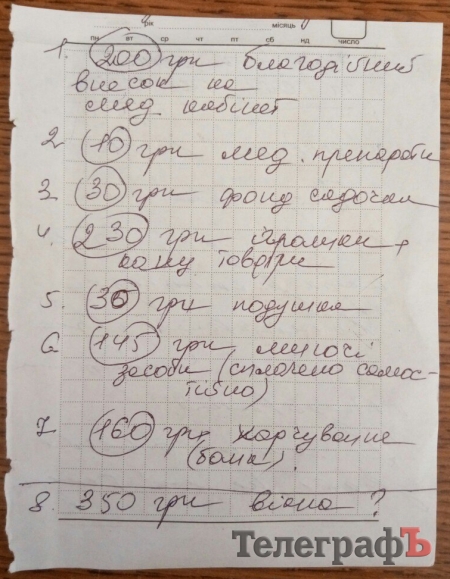 рік місяць
пн вт ср чт пт сб нд число
1. 200 грн благодійний
внесок на
мед кабінет
2 10 грн мед. препарати
3. 30 грн фонд садочка
4. 230 грн іграшки,
канц товари
5. 36 грн подушка
6 145 грн миючі
засоби (сплачено самос-
тійно)
7 160 грн харчування
(банк).
8. 350 грн вікна ?
ТелеграфЪ